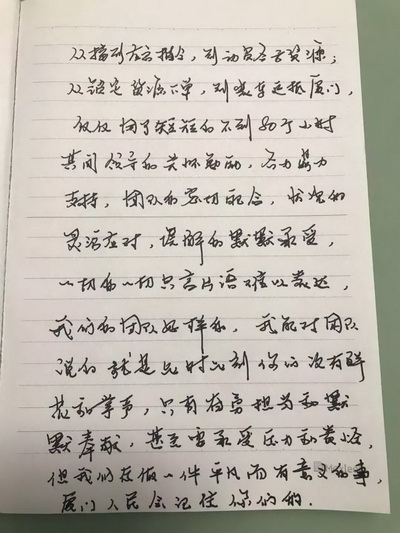 从接到方云指令，到动员各方资源；
从锁定货源下单，到装车运抵厦门，
仅仅用了短短的不到80个小时
其间领导的关怀勉励，各方鼎力
支持，团队的密切配合，状况的
灵活应对，误解的默默承受，
一切的一切只言片语难以表达，
我们的团队好样的，我能对团队
说的就是此时此刻你们没有鲜
花和掌声，只有有勇担当和默
默奉献，甚至要承受压力和责怪，
但我们在做一件平凡而有意义的事，
厦门人民会记住你们的.